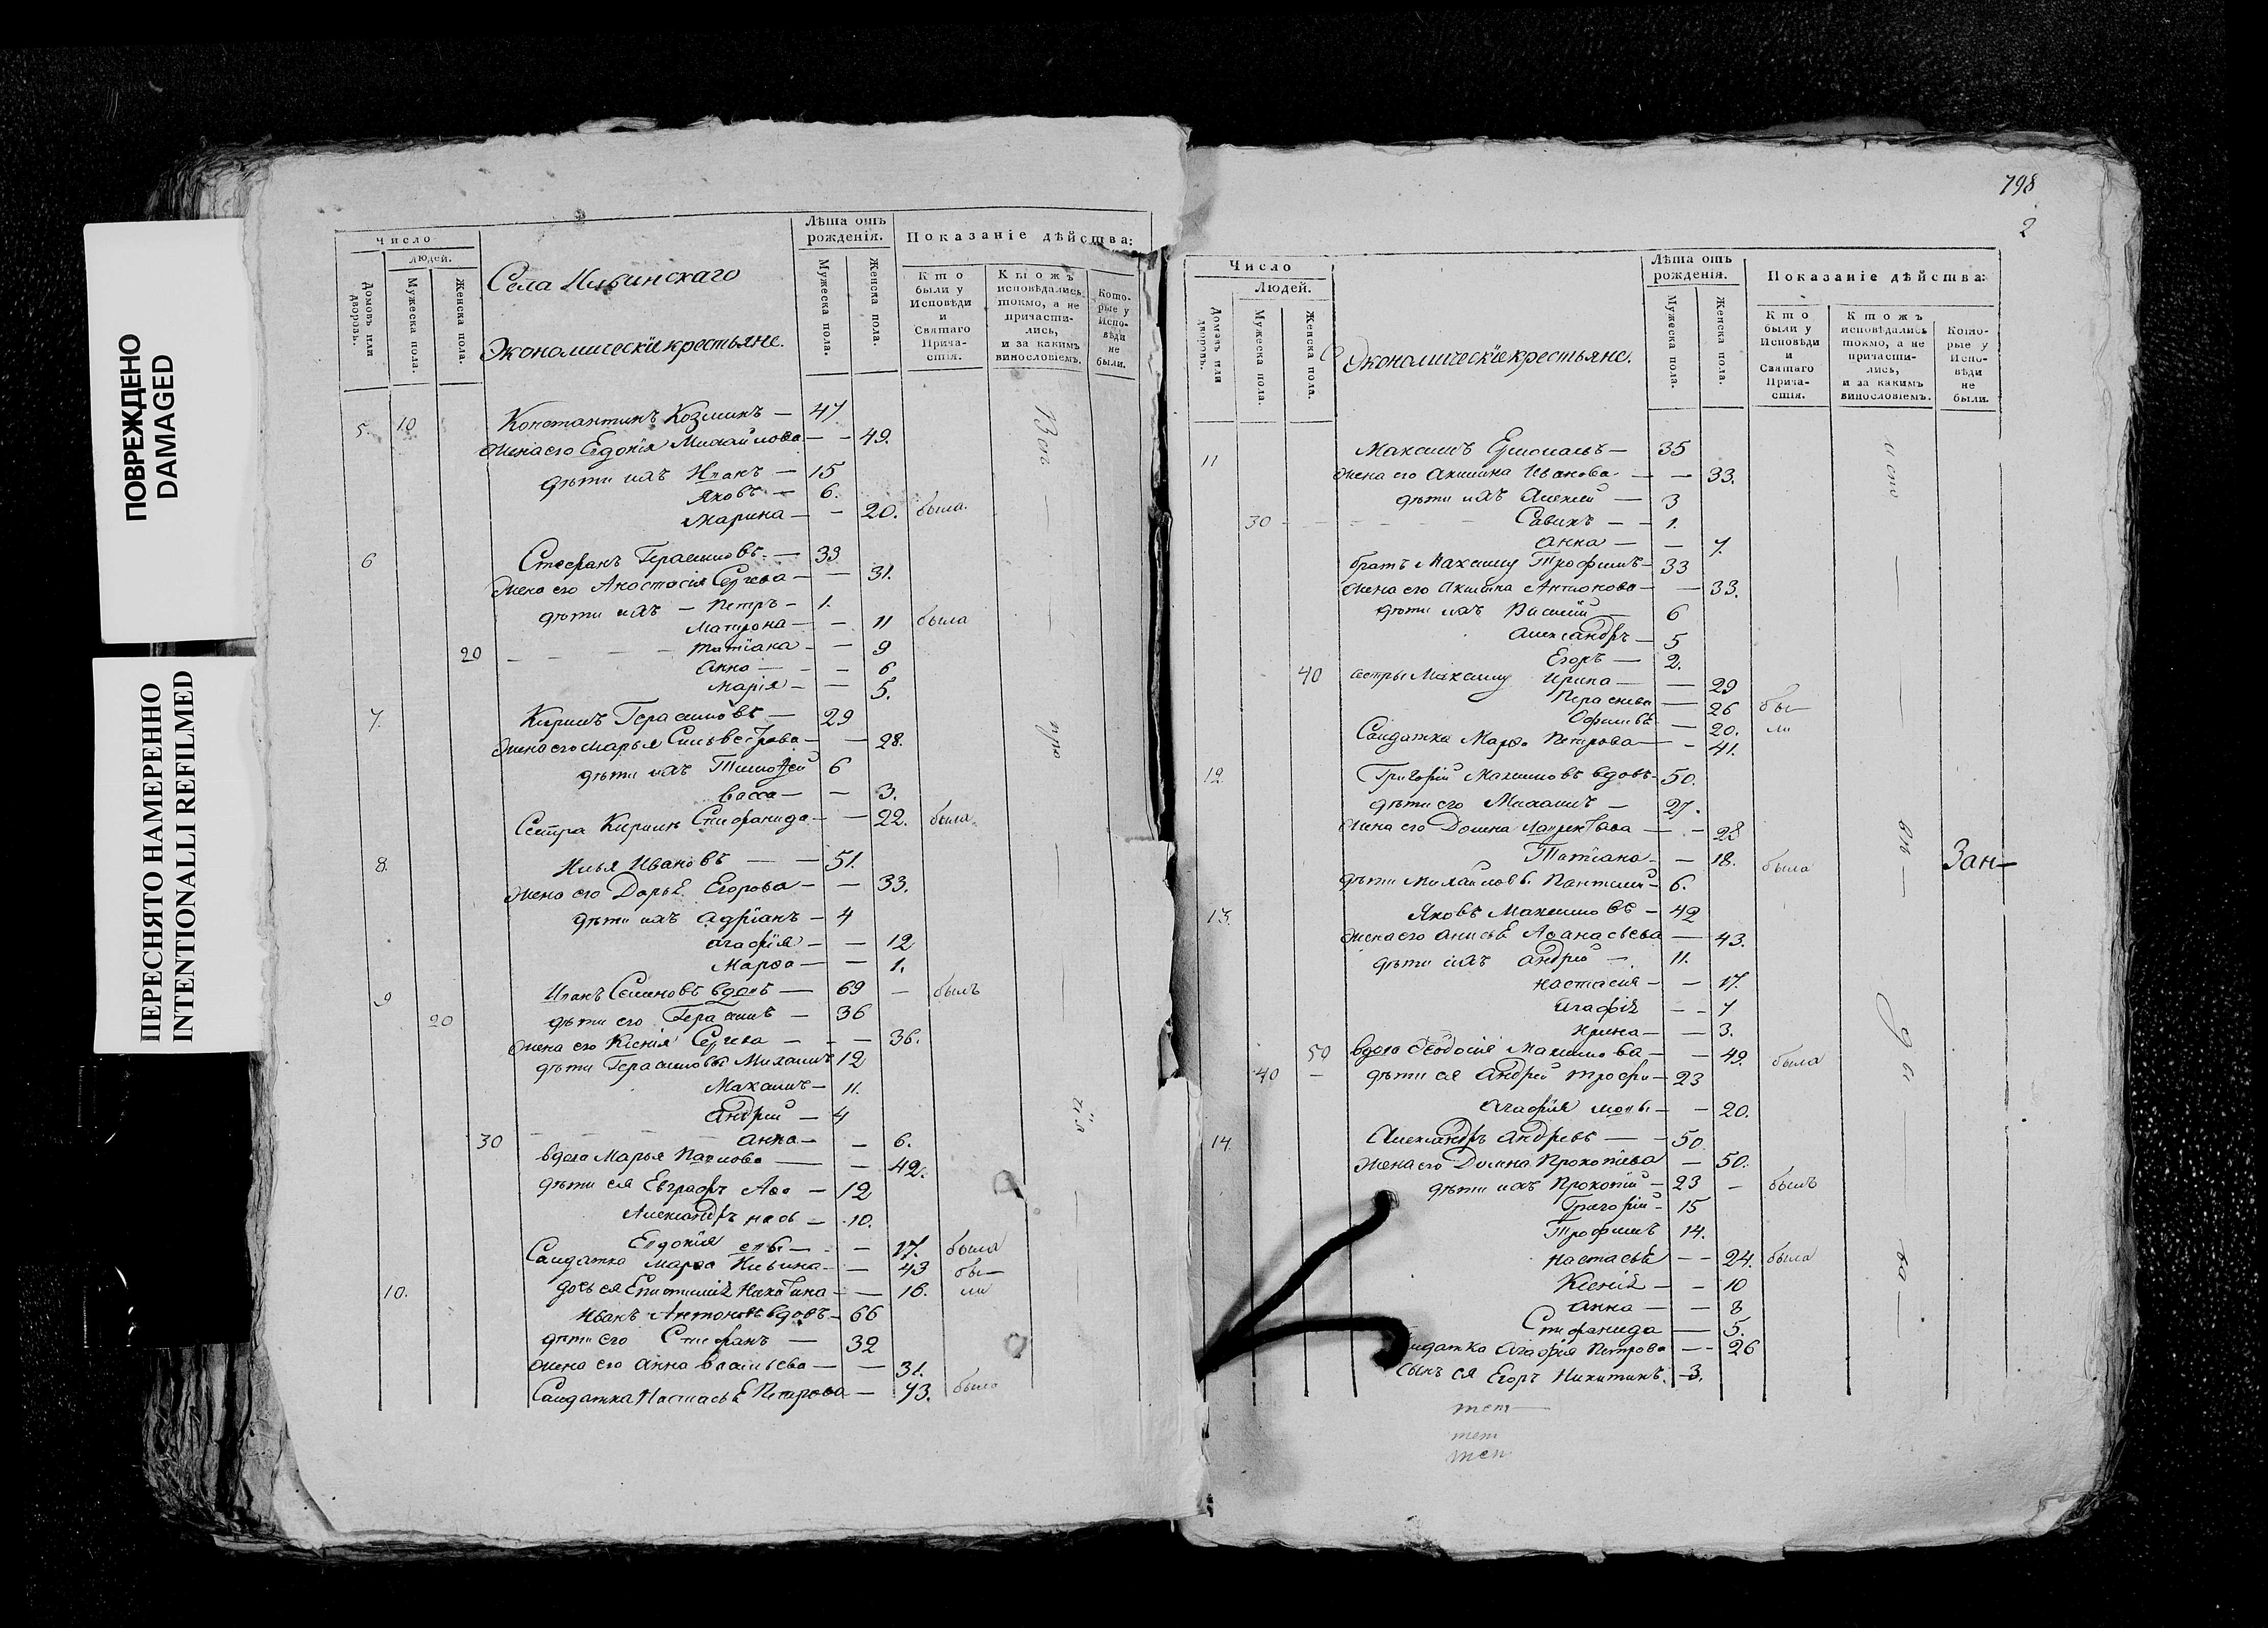 ПОВРЕЖДЕНО
DAMAGED
ПЕРЕСНЯТО НАМЕРЕННО
INTENTIONALLI REFILMED
Число
людей.
Домовъ или дворовъ.
Мужеска пола.
Женска пола.
Села Ильинскаго
Экономическїе крестьяне.
Лѣта отъ рожденія.
Мужеска пола.
Женска пола.
Показаніе дѣйства:
Кто были у Исповѣди и Святаго Прича- стія.
Ктожъ исповѣдались токмо, а не причасти- лись, и за какимъ винословіемъ.
Кото- рые у Испо- вѣди не были.
5. 10 Константинъ Козминъ — 47
жена его Евдокїя Михайлова — — 49.
дѣти ихъ Иванъ — 15
Яковъ — 6.
Марина — — 20. была
6 Стефанъ Герасимовъ — 33
жена его Анастасїя Сергеева — — 31.
дѣти ихъ — Петръ — 1.
Матрона — — 11 была
20 — — — Татїана — — 9
Анна — — — 6
Марїя — — 5.
7. Кирилъ Герасимовъ — 29
жена его Марья Сильвестрова — — 28.
дѣти ихъ Тимофей 6
Васса — — 3.
Сестра Кирилѣ Стефанида — — 22. была
8. Илья Ивановъ — — 51.
жена его Дарья Егорова — — 33.
дѣти ихъ Адрїанъ — 4
Агафїя — — 12
Марѳа — — 1.
9 Иванъ Семеновъ вдовъ — 69 — былъ
20 дѣти его Герасимъ — 36
жена его Ксенїя Сергева — — — 36.
дѣти Герасимовы Михаилъ 12
Максимъ — 11.
Андрей — 4
30 — — — Анна — — 6.
вдова Марья Павлова — — 42.
дѣти ея Евграфъ Аѳа — 12
Александръ нась — 10.
Евдокїя евы — — — 17. была
Салдатка Марѳа Ильина — — 43 бы—
10. дочь ея Никитина — — 16. ли
Иванъ Антоновъ вдовъ — 66
дѣти его Стефанъ — 32
жена его Анна Васильева — — 31.
Салдатка Настасья Петрова — 73. была
Воп —
798
2
Число
Людей.
Домовъ или дворовъ.
Мужеска пола.
Женска пола.
Экономическїе крестьяне.
Лѣта отъ рожденія.
Мужеска пола.
Женска пола.
Показаніе дѣйства:
Кто были у Исповѣди и Святаго Прича- стія.
Ктожъ исповѣдались токмо, а не причасти- лись, и за какимъ винословіемъ.
Кото- рые у Испо- вѣди не были.
11 Максимъ — 35
жена его Акилина Иванова — — 33.
дѣти ихъ Алексей — 3
30 — — — Савинъ — — 1.
Анна — — 7.
братъ Максиму Трофимъ — 33
жена его Акилина Антонова — — 33.
дѣти ихъ Василїй — 6
Александръ — 5
Егоръ — 2.
40 сестры Максиму Ирина — — 29
Параскева — 26 бы—
Офимья — 20. ли
Салдатка Марѳа Петрова — — 41.
12. Григорїй Максимовъ вдовъ — 50.
дѣти его Михаилъ — 27.
жена его Домна Лаврентьева — — 28
Татїана — — 18. была
дѣти Михайловы Пантелей — 6.
Зан—
13. Яковъ Максимовъ — 42
жена его Анисья Аѳанасьева — 43.
дѣти ихъ Андрей — 11.
Настасия — — 17.
Агафїя — — 7
Ирина — — 3.
50 вдова Ѳеодосїя Максимова — — 49. была
40 — дѣти ея Андрей Трофи — 23
Агафїя мовы — — 20.
14. Александръ Андревъ — — 50
жена его Домна Прокопїева — 50.
дѣти ихъ Прокопїй — 23 — былъ
Григорїй — 15
Трофимъ 14.
Настасья — — 24. была
Ксенїя — — 10
Анна — — 8
Стефанида — 5.
Салдатка Агафїя Петрова — — 26
Сынъ ея Егоръ Никитинъ. — 3.